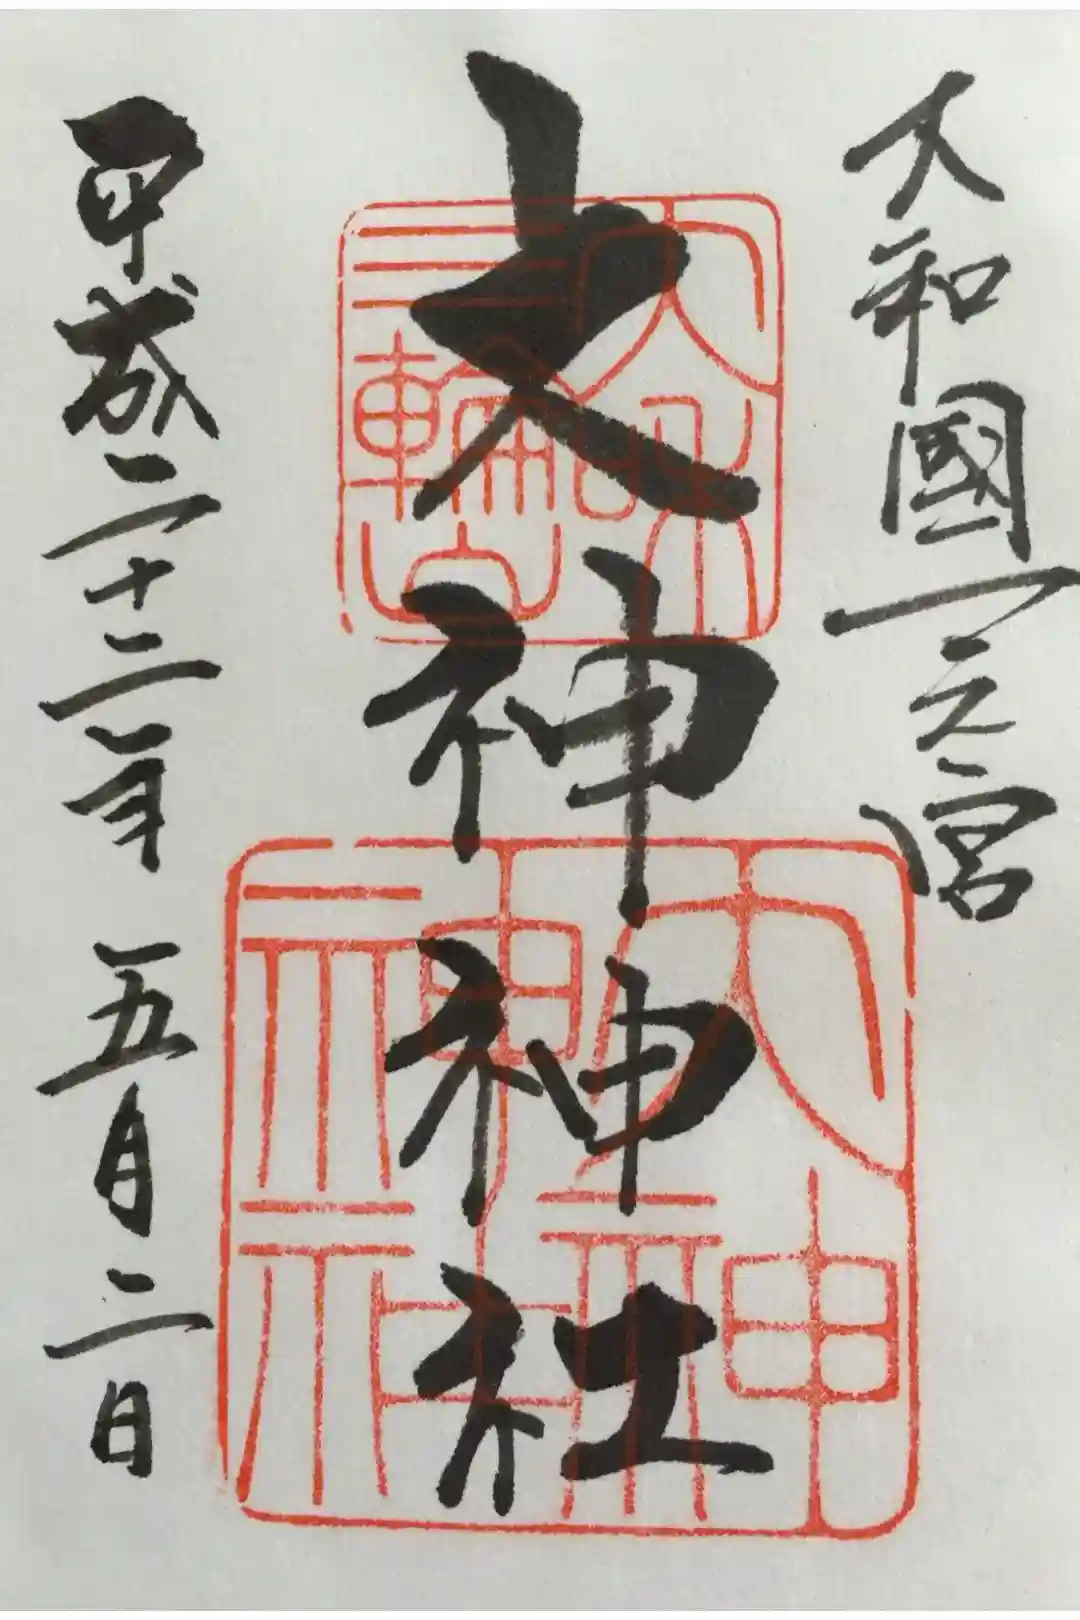 大和國一之宮
大神神社
平成二十二年五月二日
大和
三輪山
大神
神社